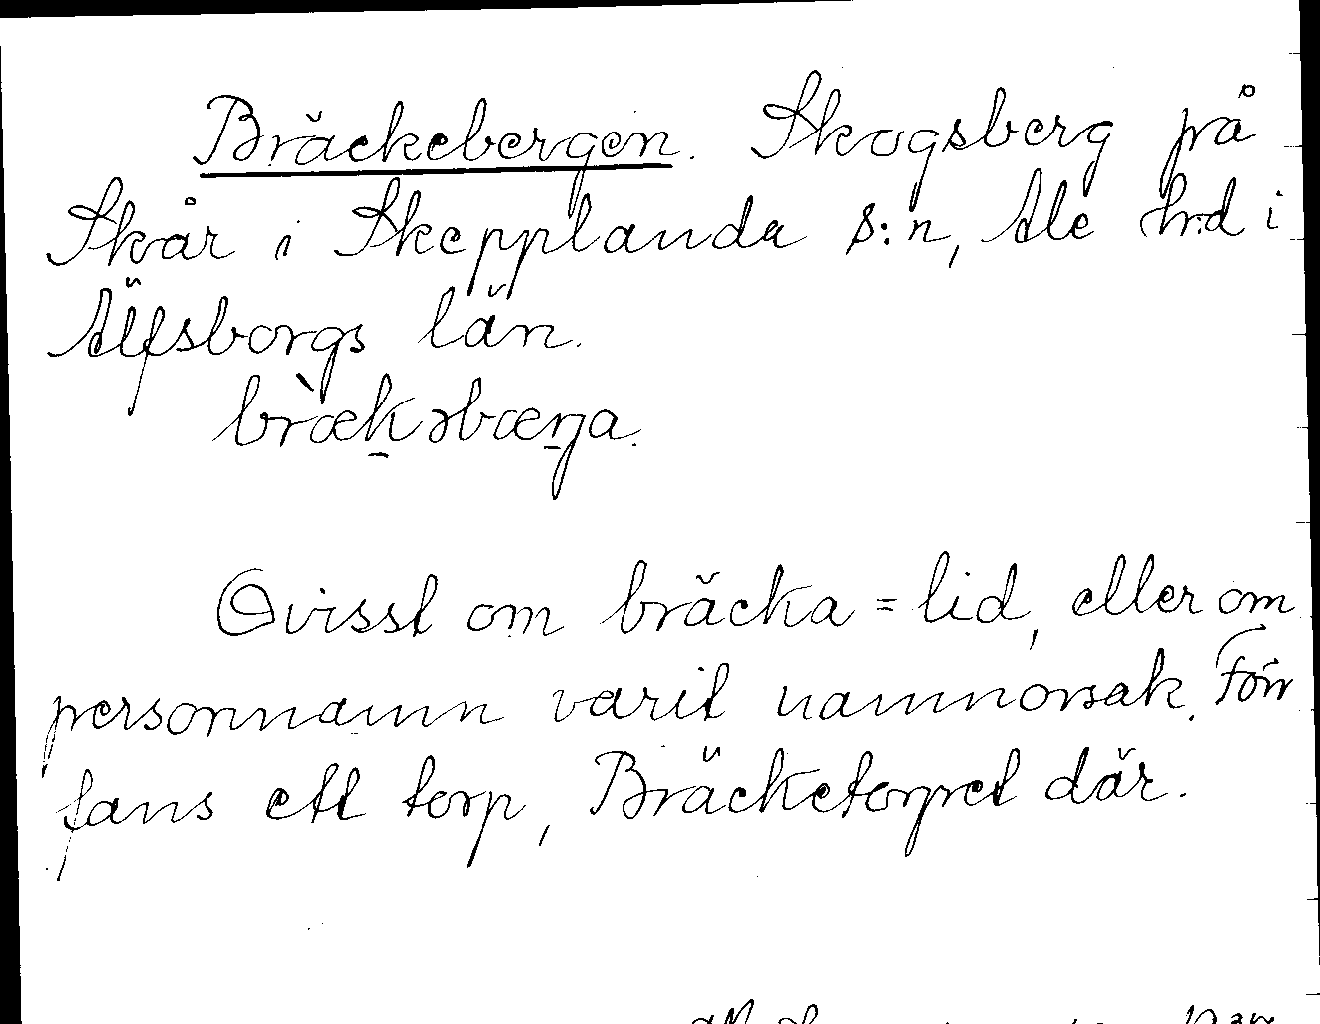 Bräckebergen. Skogsberg på
Skår i Skepplanda s:n, Ale h:d i
Älfsborgs län.
bræ̀k̠əbæŋ̠a.
Ovisst om bräcka = lid, eller om
personnamn varit namnorsak. Förr
fans ett torp, Bräcketorpet där.